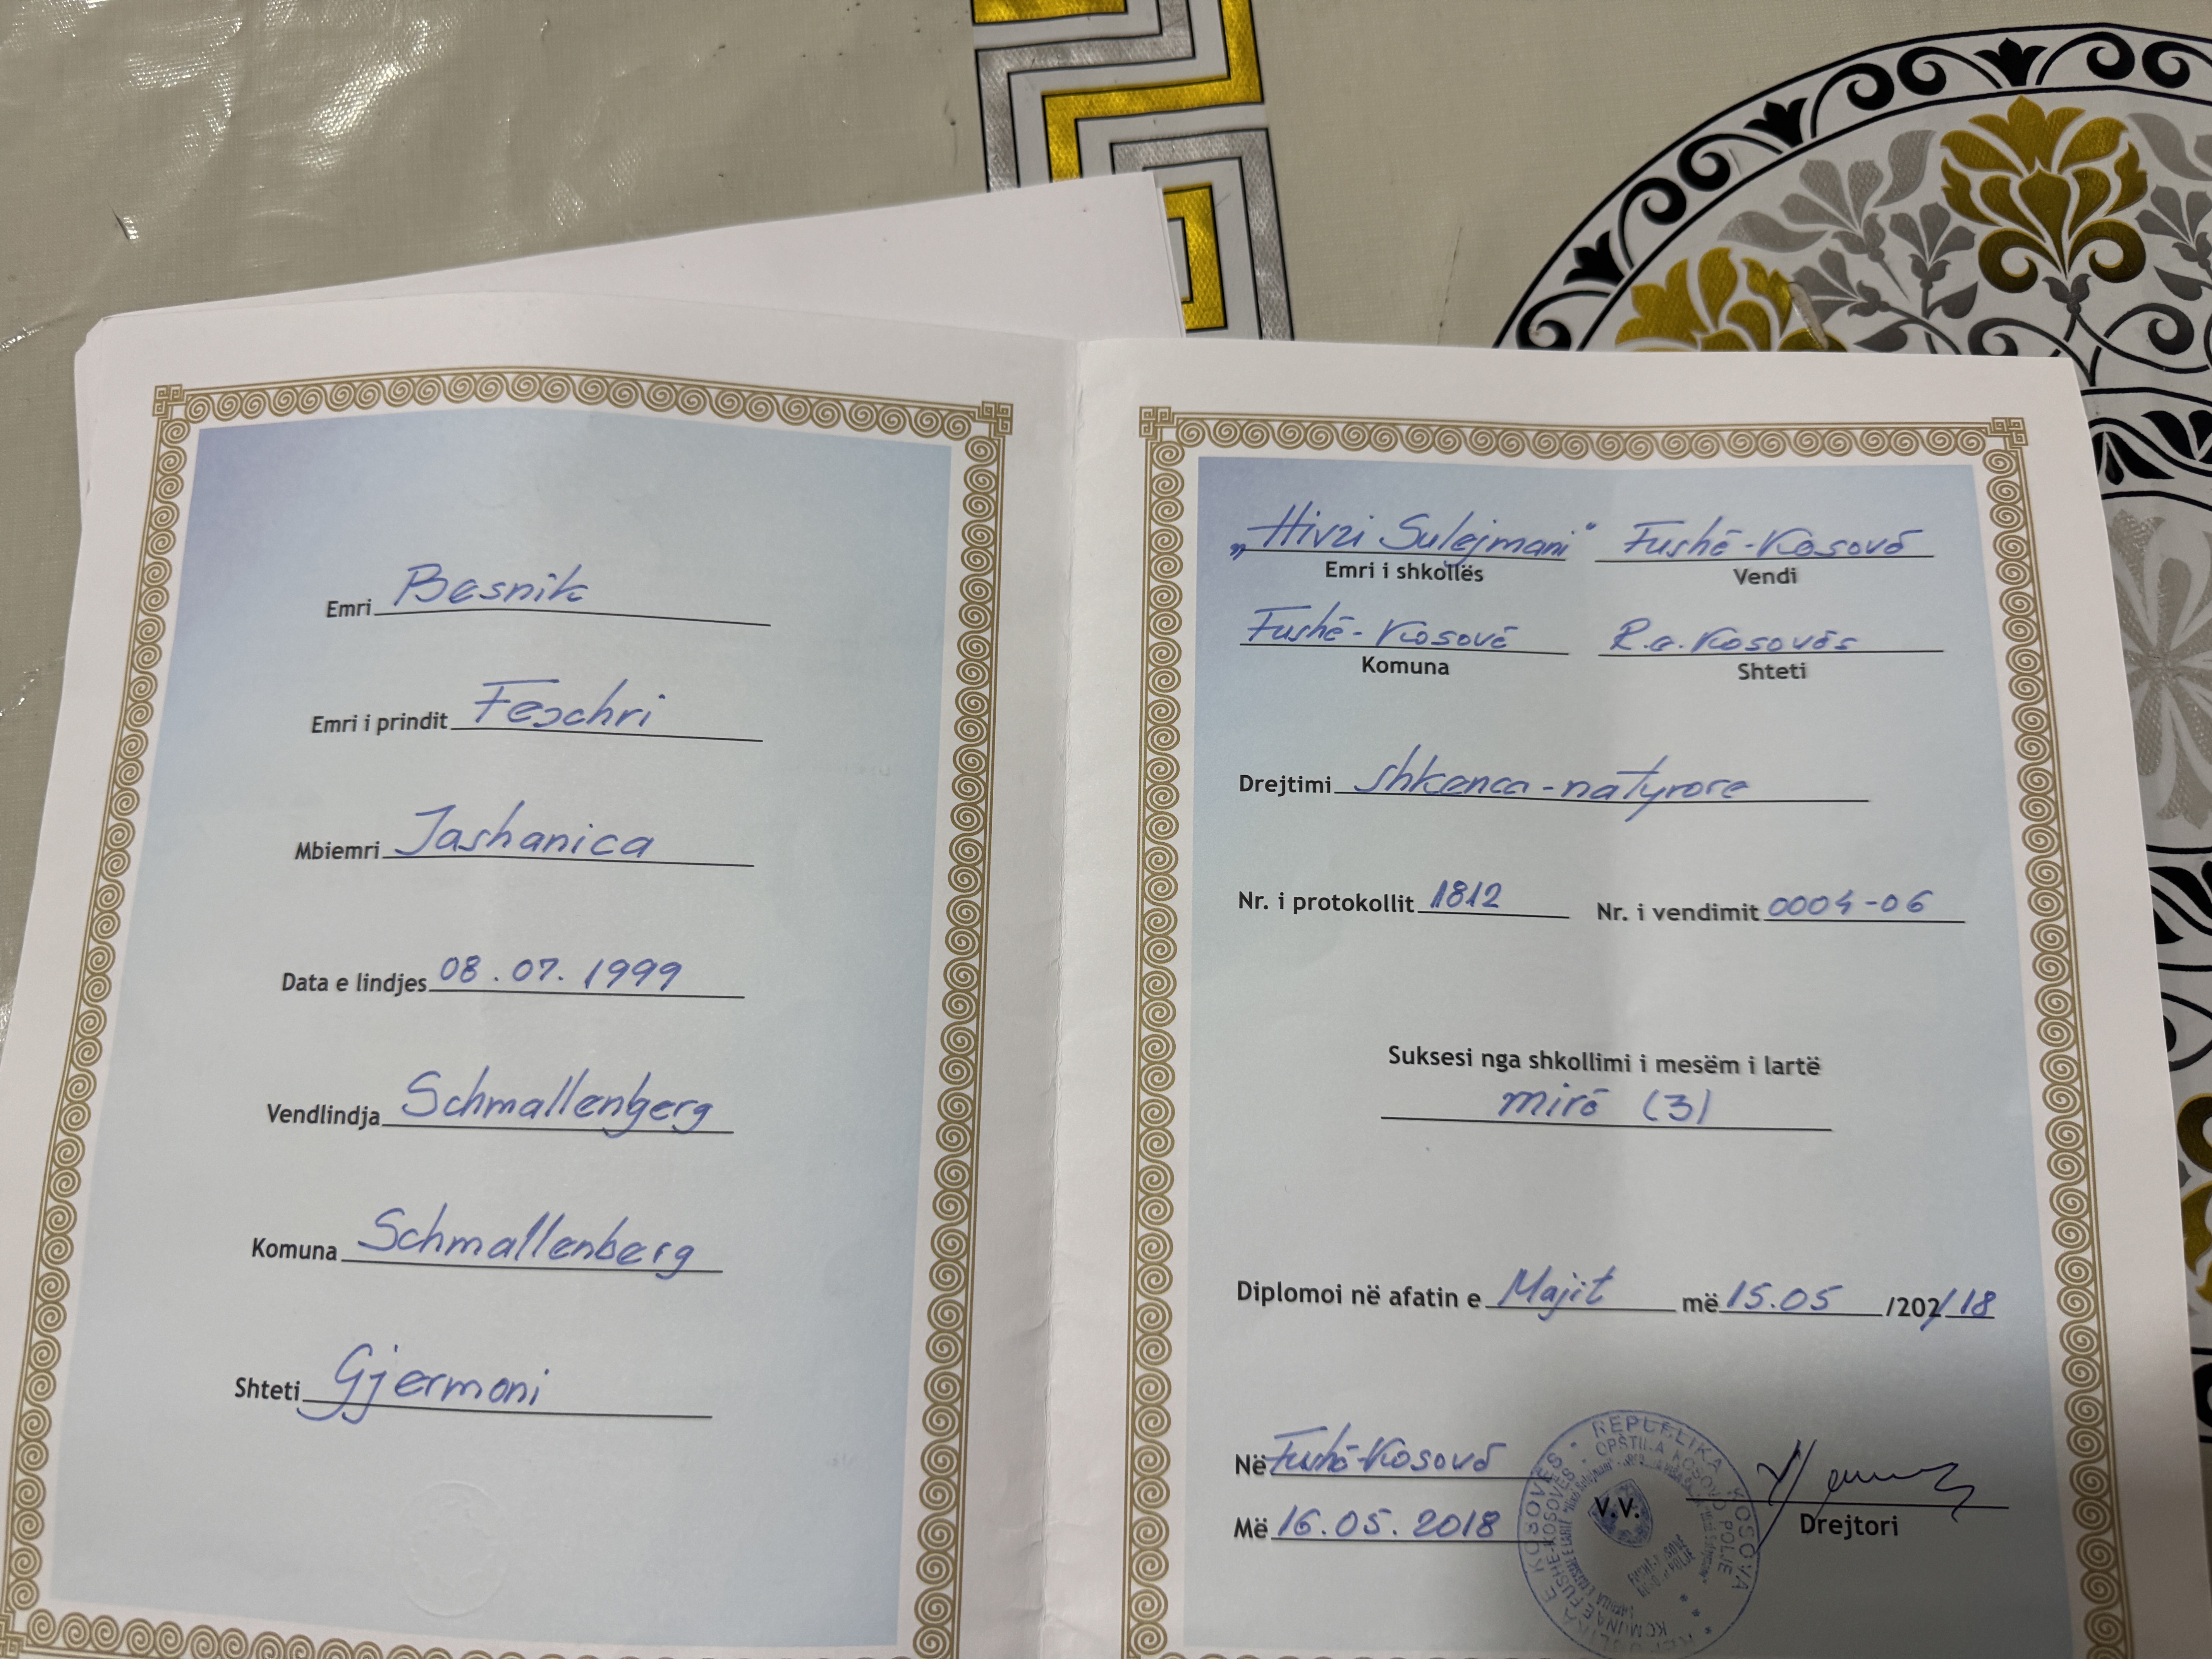 Emri Besnik
Emri i prindit Feschri
Mbiemri Jashanica
Data e lindjes 08.07.1999
Vendlindja Schmallenberg
Komuna Schmallenberg
Shteti Gjermani
"Hivzi Sulejmani" Fushë-Kosovë
Emri i shkollës Vendi
Fushë-Kosovë R.e.Kosovës
Komuna Shteti
Drejtimi Shkenca-natyrore
Nr. i protokollit 1812 Nr. i vendimit 0004-06
Suksesi nga shkollimi i mesëm i lartë
mirë (3)
Diplomoi në afatin e Majit më 15.05 /202/18
Në Fushë-Kosovë
Më 16.05.2018
V.V.
Drejtori